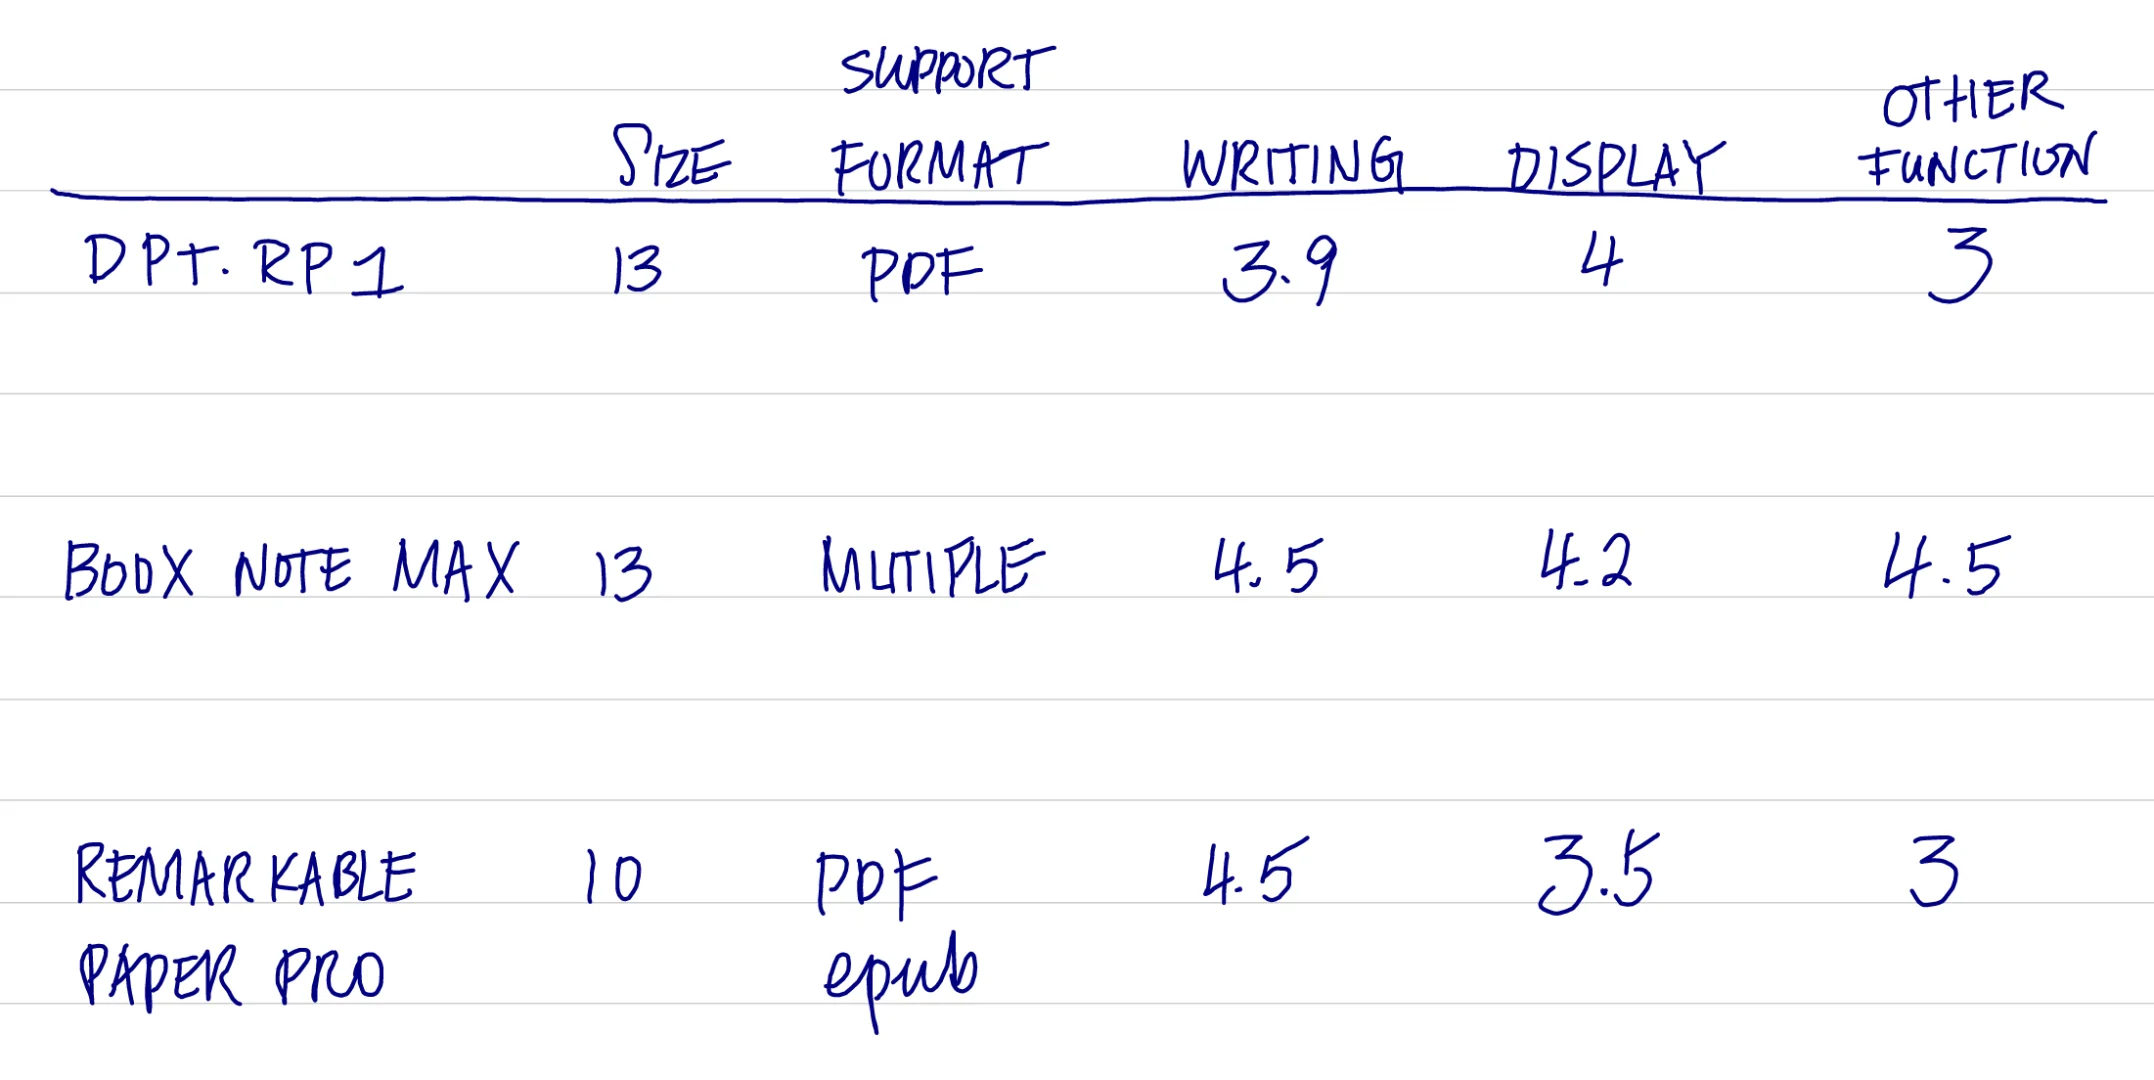 SUPPORT
OTHER
SIZE FORMAT WRITING DISPLAY FUNCTION
DPT. RP1 13 PDF 3.9 4 3
BOOX NOTE MAX 13 MUTIPLE 4.5 4.2 4.5
REMARKABLE 10 PDF 4.5 3.5 3
PAPER PRO epub